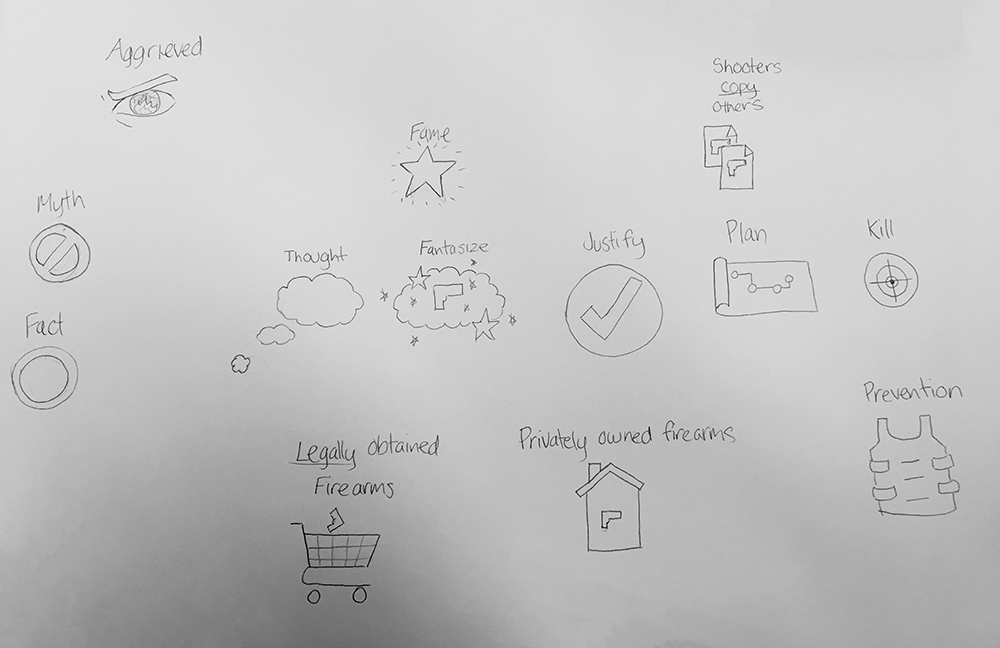 Aggrieved
Shooters
copy
others
Fame
Myth
Thought
Fantasize
Justify
Plan
Kill
Fact
Prevention
Legally obtained
Firearms
Privately owned firearms